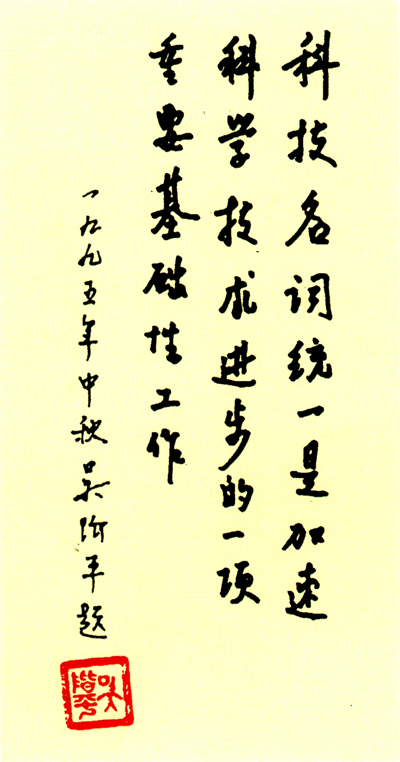 科技名词统一是加速
科学技术进步的一项
重要基础性工作
一九九五年中秋吴阶平题
吴阶平